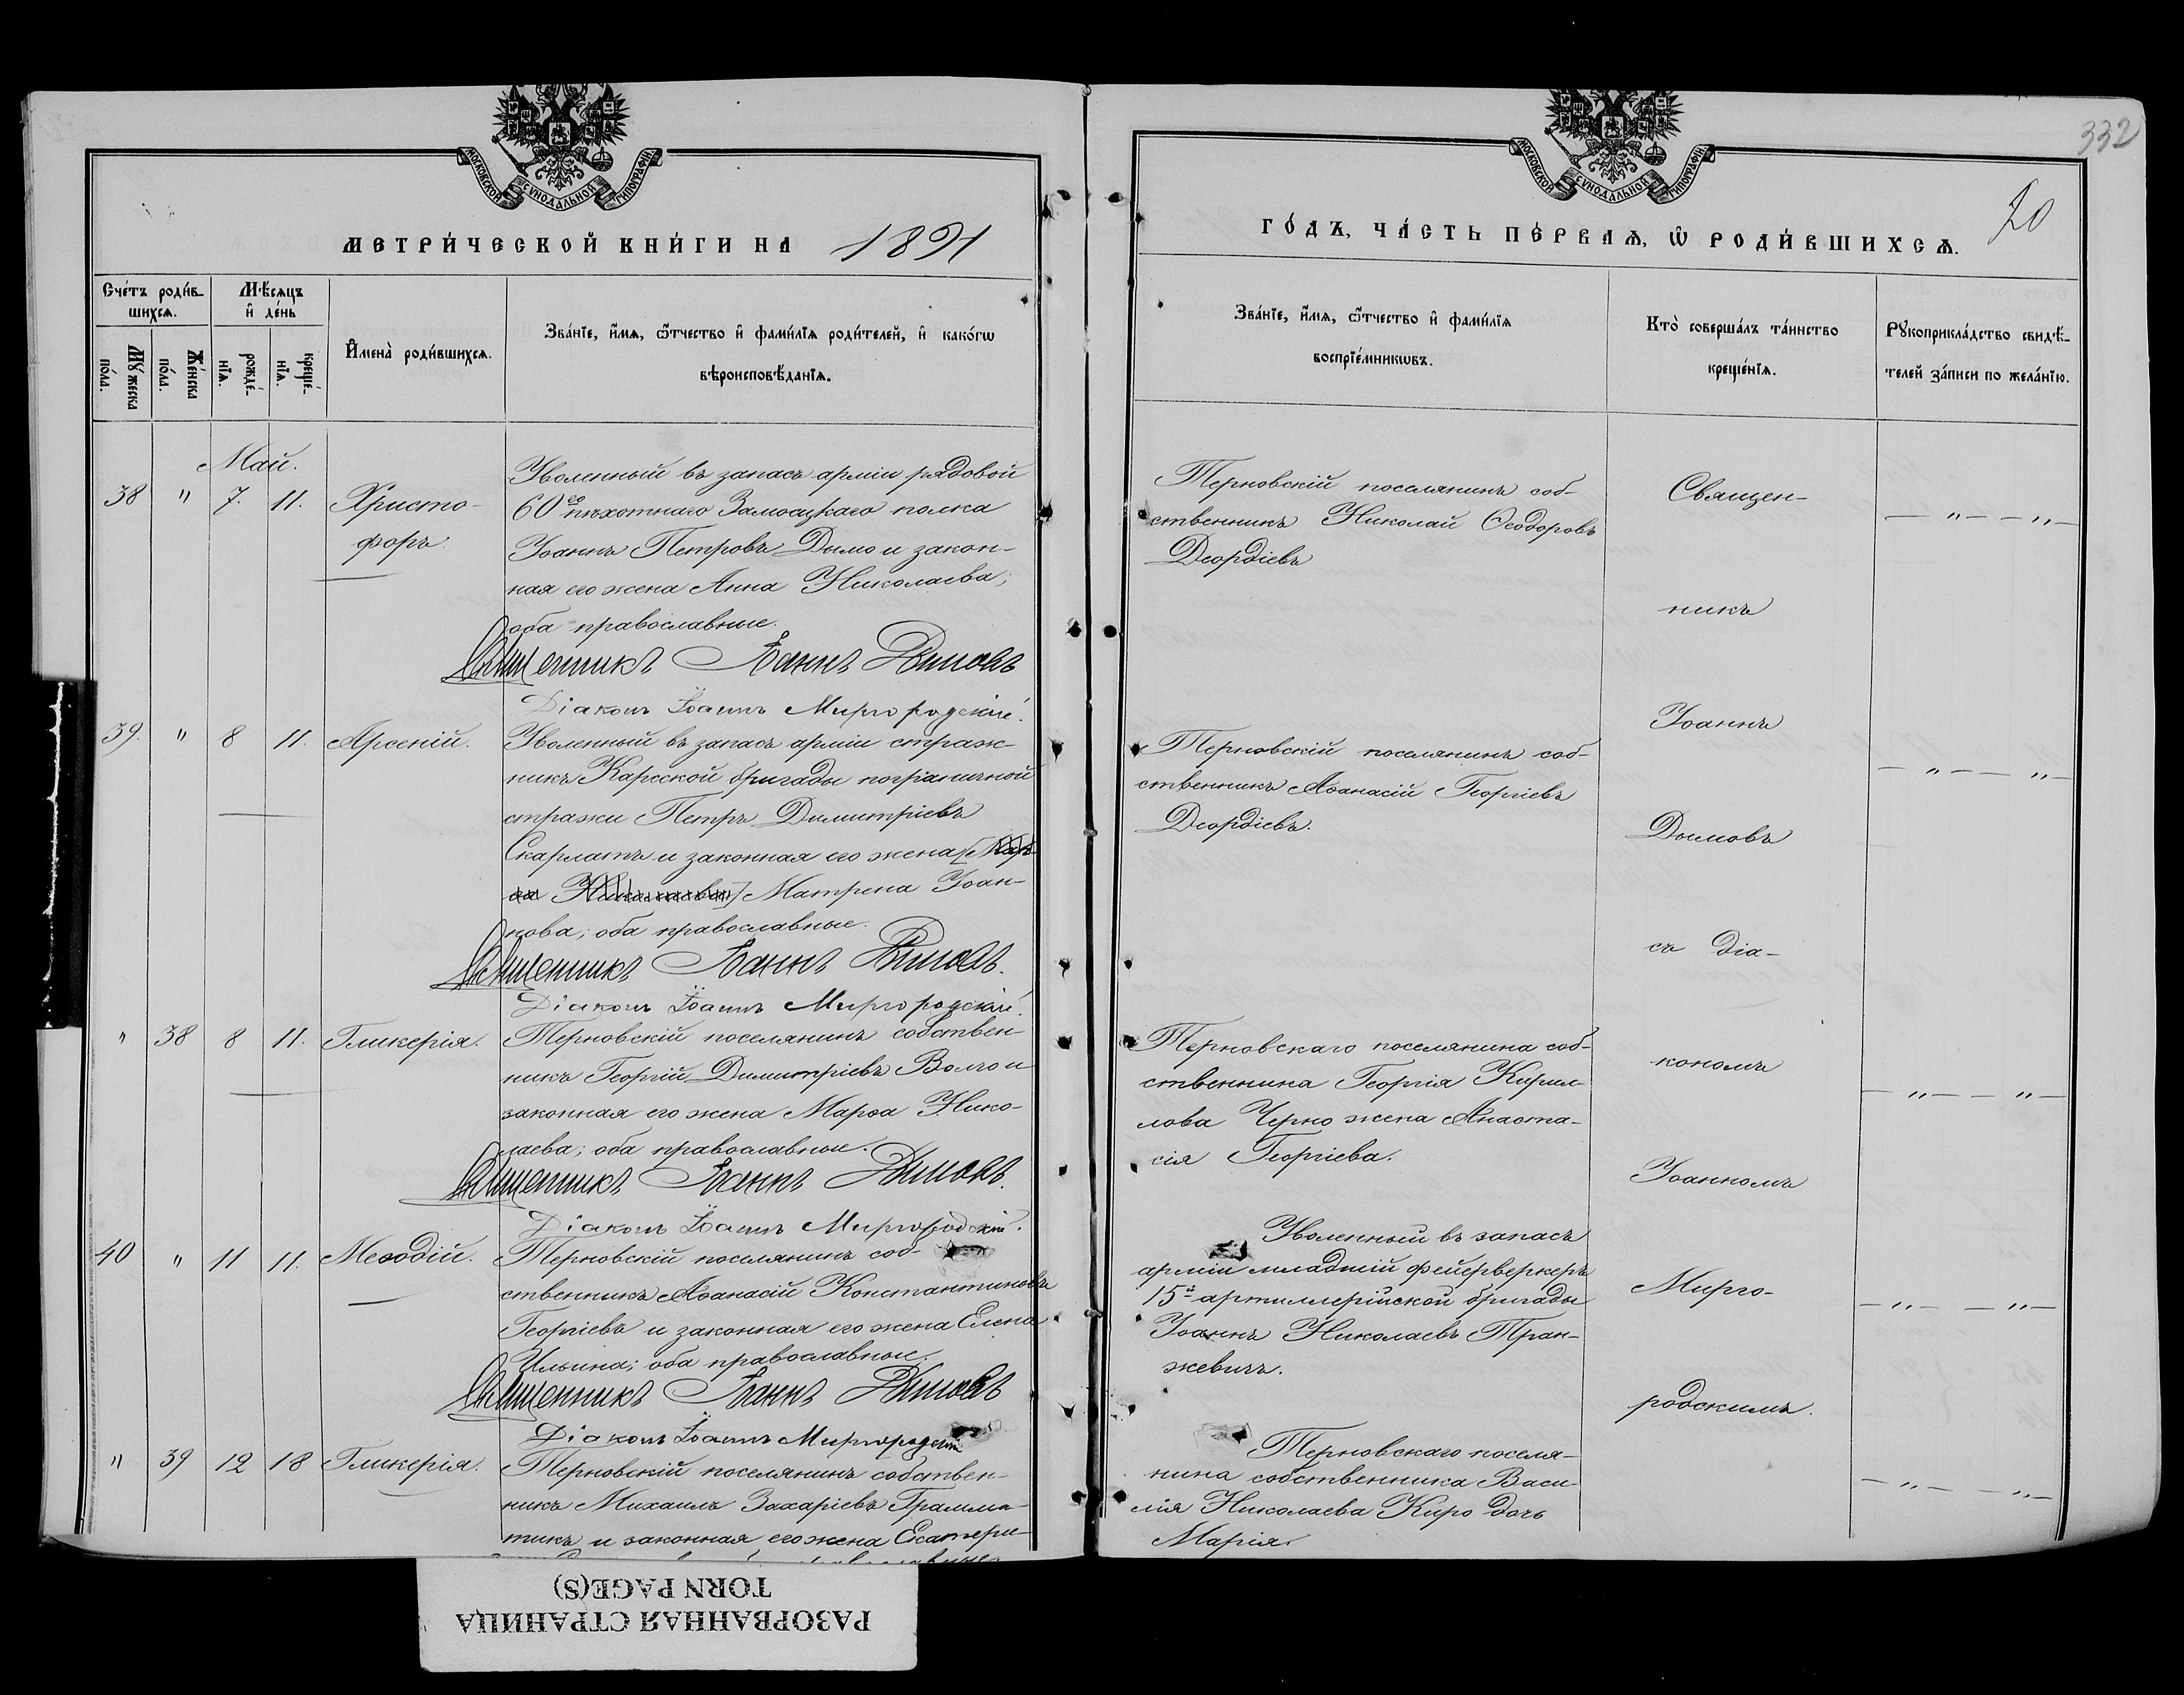 332
20
МОСКОВСКОЙ СѴНОДАЛЬНОЙ ТИПОГРАФІИ.
МОСКОВСКОЙ СѴНОДАЛЬНОЙ ТИПОГРАФІИ.
МЕТРИ́ЧЕСКОЙ КНИ́ГИ НА 1891
ГО́ДЪ, ЧА́СТЬ ПЕ́РВАѦ, Ѽ РОДИ́ВШИХСѦ.
Сче́тъ роди́в-
шихсѧ.
Мѣ́сѧцъ
и҆ де́нь
Мꙋ́жеска
по́ла.
Же́нска
по́ла.
рожде́-
нїѧ.
креще́-
нїѧ.
И҆мена̀ роди́вшихсѧ.
Зва́нїе, и҆́мѧ, ѻ҆́тчество и҆ фами́лїѧ роди́телей, и҆ како́гѡ
вѣроисповѣ́данїѧ.
Зва́нїе, и҆́мѧ, ѻ҆́тчество и҆ фами́лїѧ
воспрїе́мникѡвъ.
Кто̀ соверша́лъ та́инство
креще́нїѧ.
Рꙋкоприкла́дство свидѣ́-
телей за́писи по жела́нїю.
Май.
38 " 7. 11. Христо-
форъ.
Уволенный въ запасъ арміи рядовой
60го пѣхотнаго Замосцкаго полка
Іоаннъ Петровъ Дымо и закон-
ная его жена Анна Николаева;
оба православные.
Священникъ Іоаннъ Дымовъ
Діаконъ Іоаннъ Миргородскій.
Терновскій поселянинъ соб-
ственникъ Николай Ѳеодоровъ
Деордіевъ
— " — — " —
39. " 8 11. Арсеній.
Уволенный въ запасъ арміи страж-
никъ Карсской бригады пограничной
стражи Петръ Димитріевъ
Скарлатъ и законная его жена [Мар
ѳа Николаева] Матрена Іоан-
нова; оба православные.
Священникъ Іоаннъ Дымовъ.
Діаконъ Іоаннъ Миргородскій.
Терновскій поселянинъ соб-
ственникъ Аѳанасій Георгіевъ
Деордіевъ.
— " — — " —
" 38 8 11. Гликерія.
Терновскій поселянинъ собствен-
никъ Георгій Димитріевъ Волго и
законная его жена Марѳа Нико-
лаева; оба православные.
Священникъ Іоаннъ Дымовъ.
Діаконъ Іоаннъ Миргородскій.
Терновскаго поселянина соб-
ственника Георгія Кирил-
лова Черно жена Анаста-
сія Георгіева.
— " — — " —
40 " 11 11. Меѳодій.
Терновскій поселянинъ соб-
ственникъ Аѳанасій Константиновъ
Георгіевъ и законная его жена Елена
Ильина; оба православные.
Священникъ Іоаннъ Дымовъ
Діаконъ Іоаннъ Миргородскій
Уволенный въ запасъ
арміи младшій фейерверкеръ
15й артиллерійской бригады
Іоаннъ Николаевъ Тран-
жевичъ.
— " — — " —
" 39 12 18 Гликерія.
Терновскій поселянинъ собствен-
никъ Михаилъ Захаріевъ Грамма-
тикъ и законная его жена Екатери-
Терновскаго поселя-
нина собственника Васи-
лія Николаева Киро дочь
Марія.
— " — — " —
Священ-
никъ
Іоаннъ
Дымовъ
съ діа-
кономъ
Іоанномъ
Мирго-
родскимъ.
РАЗОРВАННАЯ СТРАНИЦА
TORN PAGE(S)